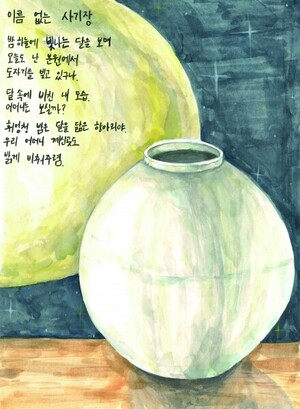 이름 없는 사기장
밤하늘에 빛나는 달을 보며
오늘도 난 분원에서
도자기를 빚고 있구나.
달 속에 비친 내 모습.
어머니는 보실까?
휘영청 넓은 달을 닮은 항아리야.
우리 어머니 계신곳도
밝게 비춰주렴.